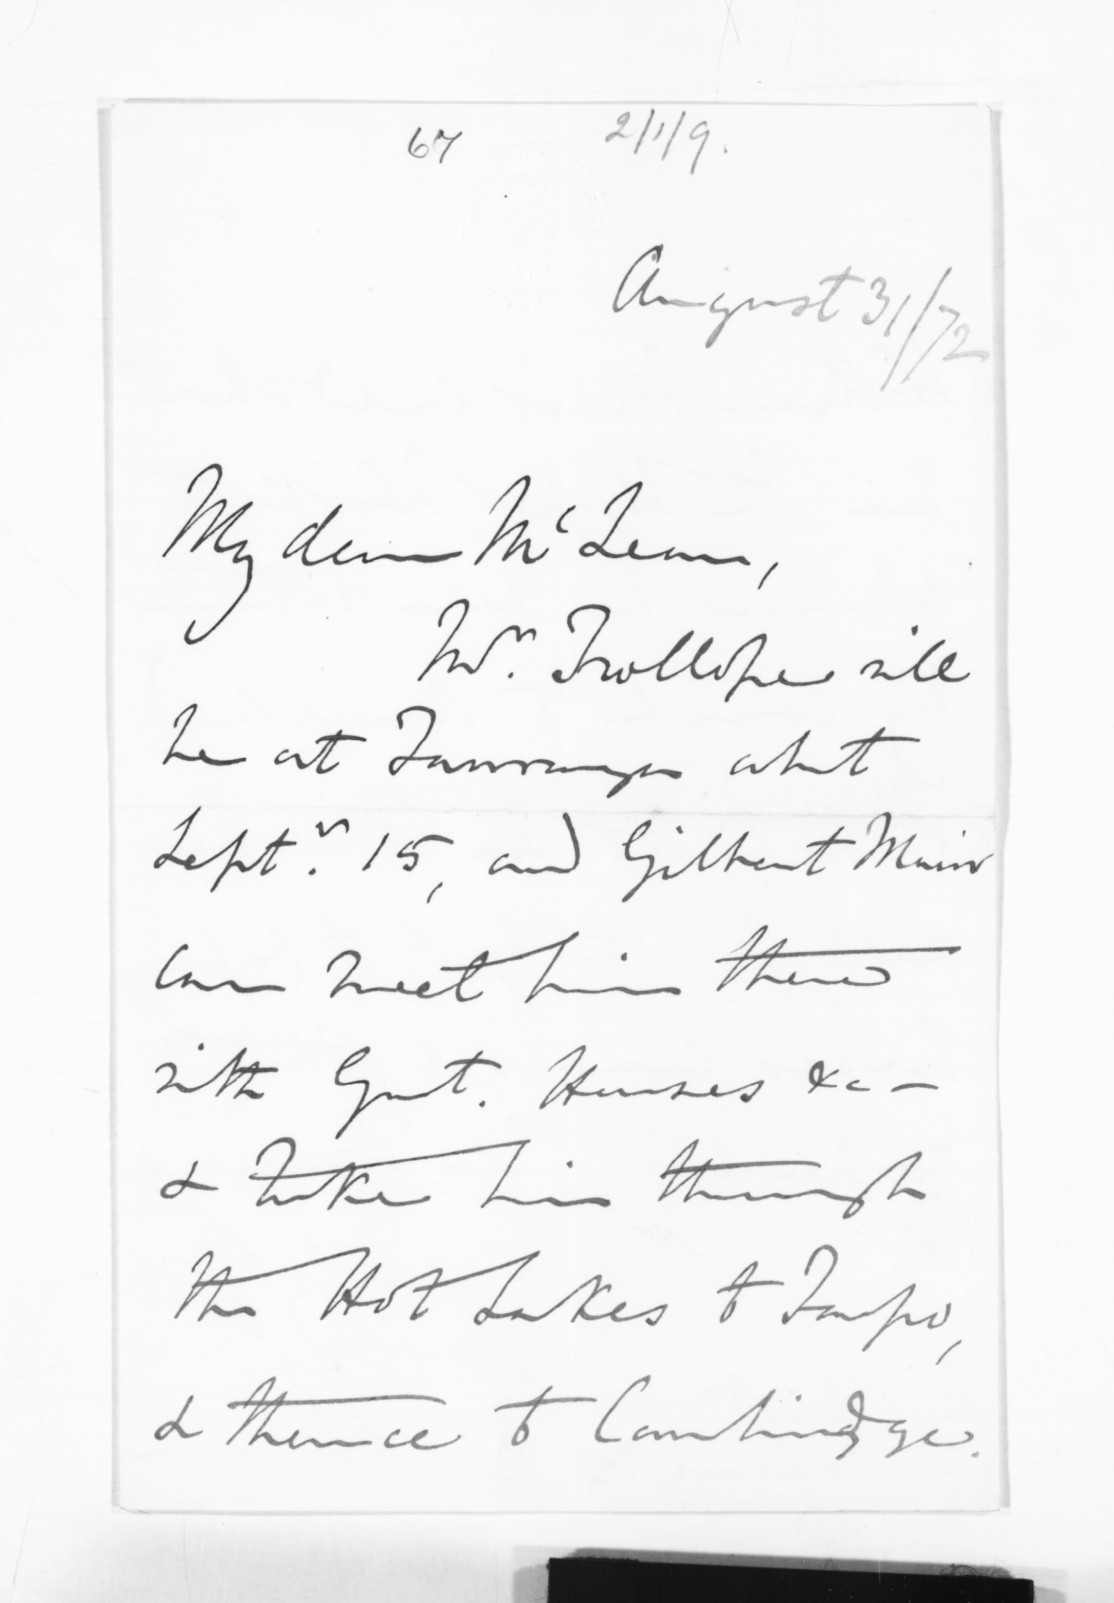 67 2/1/9.
August 31/72
My dear McLean,
Mr. Trollope will
be at Tauranga about
Septr. 15, and Gilbert Mair
can meet him there
with Govt. Horses &c -
& take him through
the Hot Lakes to Taupo,
& thence to Cambridge.